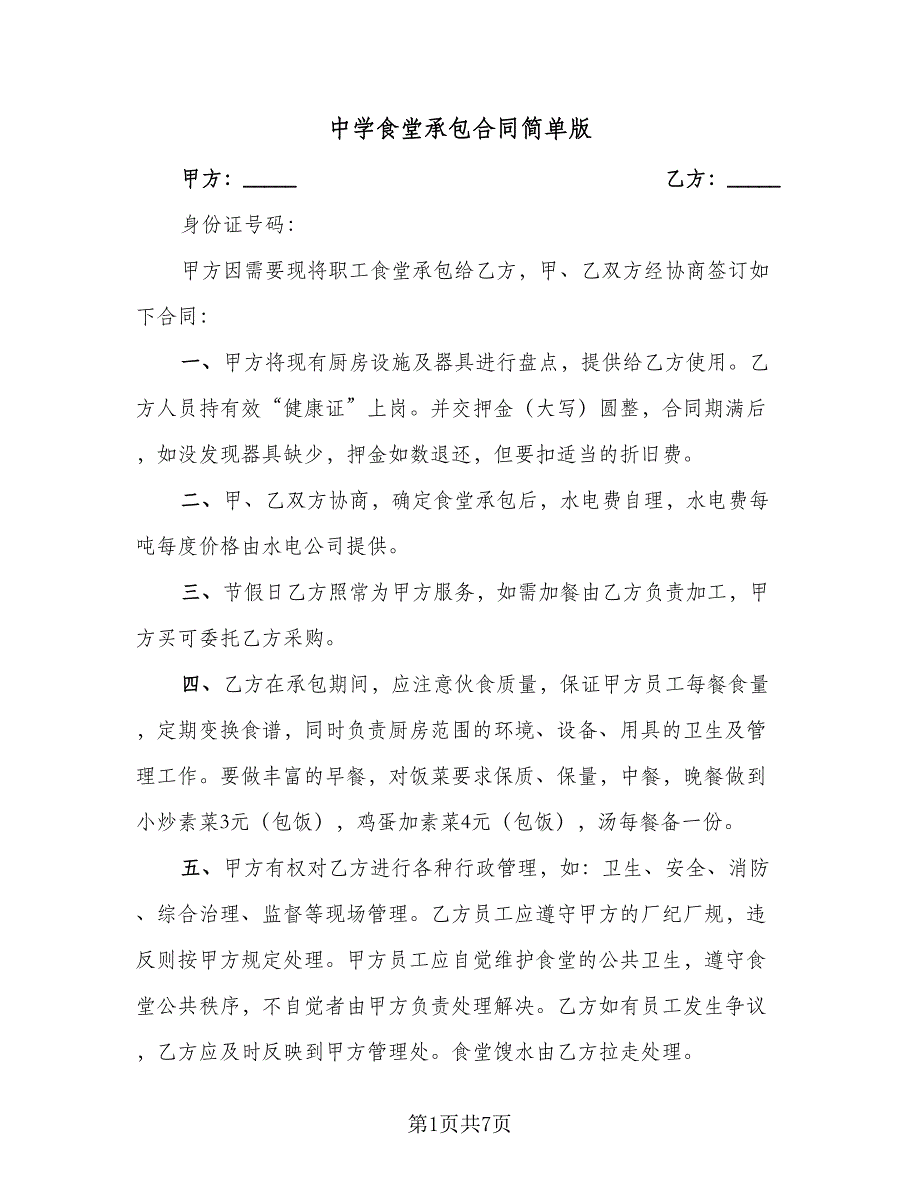 中学食堂承包合同简单版
甲方：_____ 乙方：_____
身份证号码：
甲方因需要现将职工食堂承包给乙方，甲、乙双方经协商签订如
下合同：
一、甲方将现有厨房设施及器具进行盘点，提供给乙方使用。乙
方人员持有效“健康证”上岗。并交押金（大写）圆整，合同期满后
，如没发现器具缺少，押金如数退还，但要扣适当的折旧费。
二、甲、乙双方协商，确定食堂承包后，水电费自理，水电费每
吨每度价格由水电公司提供。
三、节假日乙方照常为甲方服务，如需加餐由乙方负责加工，甲
方买可委托乙方采购。
四、乙方在承包期间，应注意伙食质量，保证甲方员工每餐食量
，定期变换食谱，同时负责厨房范围的环境、设备、用具的卫生及管
理工作。要做丰富的早餐，对饭菜要求保质、保量，中餐，晚餐做到
小炒素菜3元（包饭），鸡蛋加素菜4元（包饭），汤每餐备一份。
五、甲方有权对乙方进行各种行政管理，如：卫生、安全、消防
、综合治理、监督等现场管理。乙方员工应遵守甲方的厂纪厂规，违
反则按甲方规定处理。甲方员工应自觉维护食堂的公共卫生，遵守食
堂公共秩序，不自觉者由甲方负责处理解决。乙方如有员工发生争议
，乙方应及时反映到甲方管理处。食堂馊水由乙方拉走处理。
第1页共7页